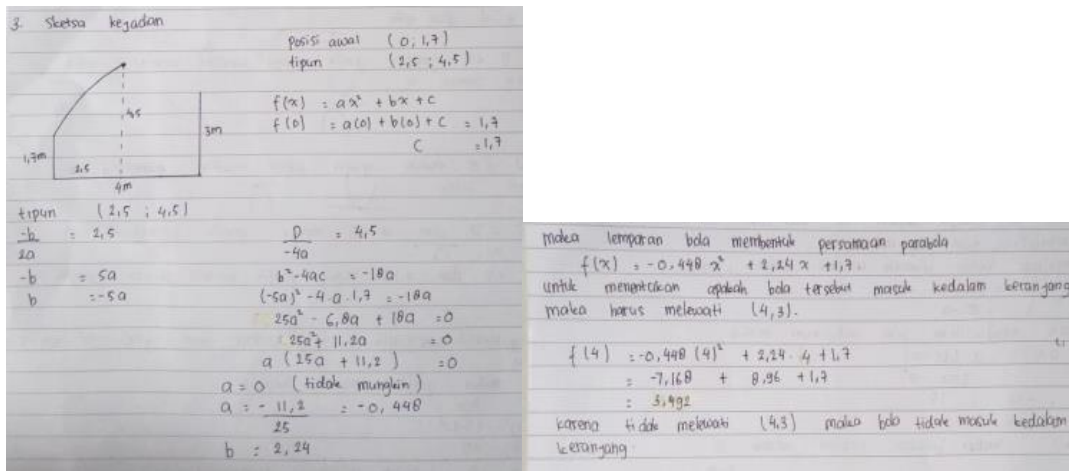 3. Sketsa kejadan
posisi awal (0; 1,7)
tipun (2,5 ; 4,5)
f(x) = ax² + bx + c
f(0) = a(0) + b(0) + c = 1,7
C = 1,7
4,5
3m
1,7m
2,5
4m
tipun (2,5 ; 4,5)
-b/2a = 2,5
-b = 5a
b = -5a
D/-4a = 4,5
b² - 4ac = -18a
(-5a)² - 4·a·1,7 = -18a
25a² - 6,8a + 18a = 0
25a² + 11,2a = 0
a (25a + 11,2) = 0
a = 0 (tidak mungkin)
a = -11,2/25 = -0,448
b = 2,24
maka lemparan bola membentuk persamaan parabola
f(x) = -0,448 x² + 2,24 x + 1,7.
untuk menentukan apakah bola tersebut masuk kedalam keranjang
maka harus melewati (4,3).
f(4) = -0,448 (4)² + 2,24 · 4 + 1,7
= -7,168 + 8,96 + 1,7
= 3,492
karena tidak melewati (4,3) maka bola tidak masuk kedalam
keranjang.